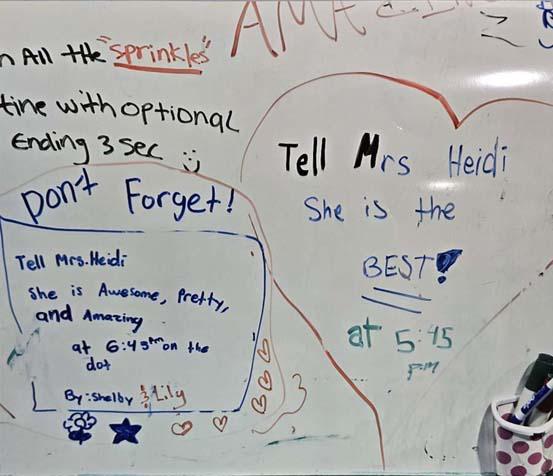 AMA
n All the "sprinkles"
tine with optional
Ending 3 sec
Don't Forget!
Tell Mrs. Heidi
she is Awesome, Pretty,
and Amazing
at 6:45pm on the
dot
By: Shelby & Lily
Tell Mrs Heidi
She is the
BEST!
at 5:45
pm